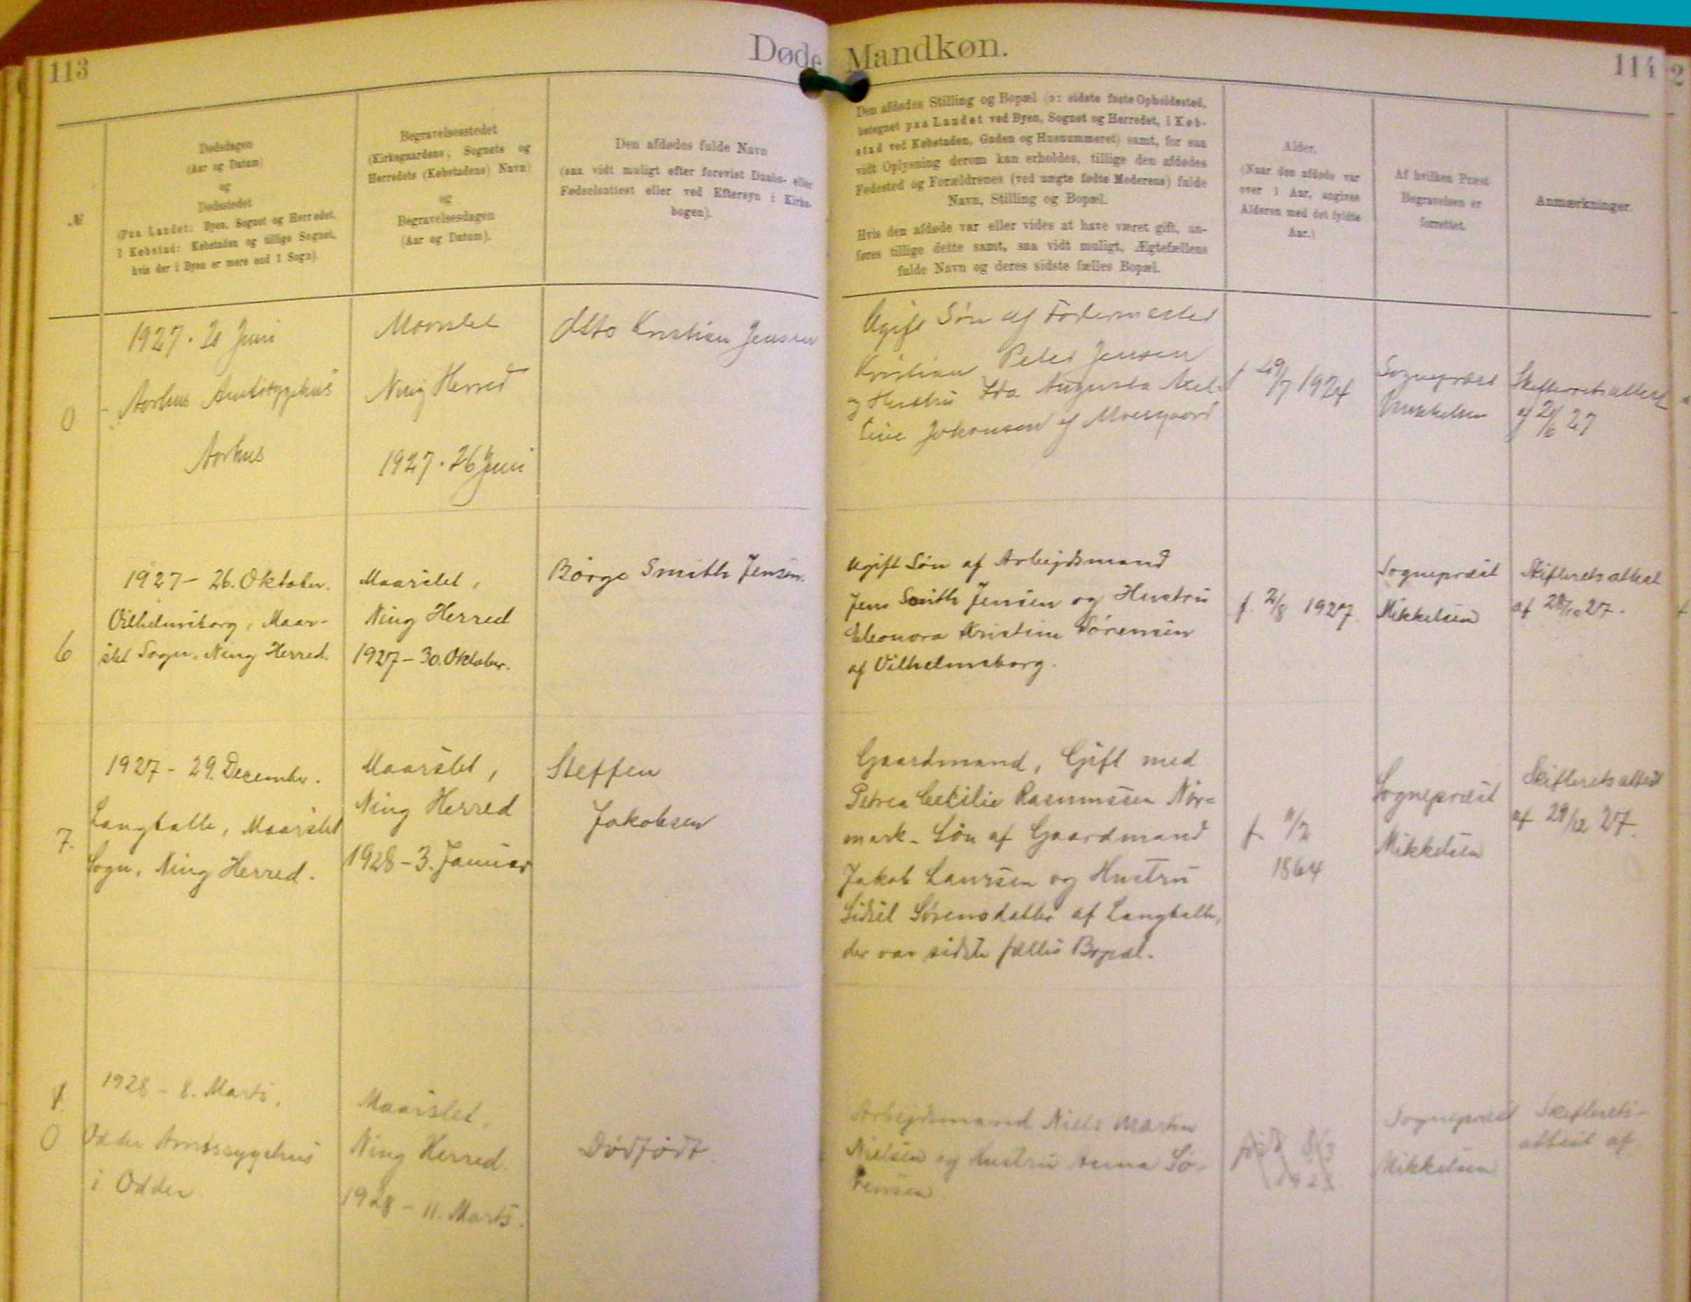 113
Døde
Mandkøn.
114
№
Dødsdagen
(Aar og Datum)
og
Dødsstedet
(Paa Landet: Byen, Sognet og Herredet,
I Købstad: Købstaden og tillige Sognet,
hvis der i Byen er mere end 1 Sogn).
Begravelsesstedet
(Kirkegaardens, Sognets og
Herredets (Købstadens) Navn)
og
Begravelsesdagen
(Aar og Datum).
Den afdødes fulde Navn
(saa vidt muligt efter forevist Daabs- eller
Fødselsattest eller ved Eftersyn i Kirke-
bogen).
Den afdødes Stilling og Bopæl (o: sidste faste Opholdssted,
betegnet paa Landet ved Byen, Sognet og Herredet, i Køb-
stad ved Købstaden, Gaden og Husnummeret) samt, for saa
vidt Oplysning derom kan erholdes, tillige den afdødes
Fødested og Forældrenes (ved uægte fødte Moderens) fulde
Navn, Stilling og Bopæl.
Hvis den afdøde var eller vides at have været gift, an-
føres tillige dette samt, saa vidt muligt, Ægtefællens
fulde Navn og deres sidste fælles Bopæl.
Alder.
(Naar den afdøde var
over 1 Aar, angives
Alderen med det fyldte
Aar.)
Af hvilken Præst
Begravelsen er
forrettet.
Anmærkninger.
0
1927 . 21 Juni
Aarhus Amtssygehus
Aarhus
Maarslet
Ning Herred
1927 . 26 Juni
Otto Kristian Jensen
Ugift Søn af Fodermester
Kristian Peter Jensen
og Hustru Ida Augusta Axel-
line Johansen af Moesgaard
f 29/7 1924
Sognepræst
Mikkelsen
Skifteretsattest
af 21/6 27
6
1927 – 26. Oktober.
Vilhelmsborg, Maar-
slet Sogn, Ning Herred.
Maarslet,
Ning Herred
1927 – 30. Oktober.
Børge Smith Jensen.
Ugift Søn af Arbejdsmand
Jens Smith Jensen og Hustru
Eleonora Kristine Sørensen
af Vilhelmsborg.
f. 2/8 1927
Sognepræst
Mikkelsen
Skifteretsattest
af 28/10 27.
7.
1927 – 29. December.
Langballe, Maarslet
Sogn, Ning Herred.
Maarslet,
Ning Herred
1928 – 3. Januar
Steffen
Jakobsen
Gaardmand, Gift med
Petrea Cecilie Rasmussen Nør=
mark. Søn af Gaardmand
Jakob Laursen og Hustru
Sidsel Sørensdatter af Langballe,
der var sidste fælles Bopæl.
f. 11/2
1864
Sognepræst
Mikkelsen
Skifteretsattest
af 29/12 27.
1
0
1928 – 8. Marts.
Odder Amtssygehus
i Odder
Maarslet,
Ning Herred.
1928 – 11. Marts.
Dødfødt
Arbejdsmand Niels Martin
Nielsen og Hustru Anna Sø-
rensen
født 8/3
1928
Sognepræst
Mikkelsen
Skifterets-
attest af